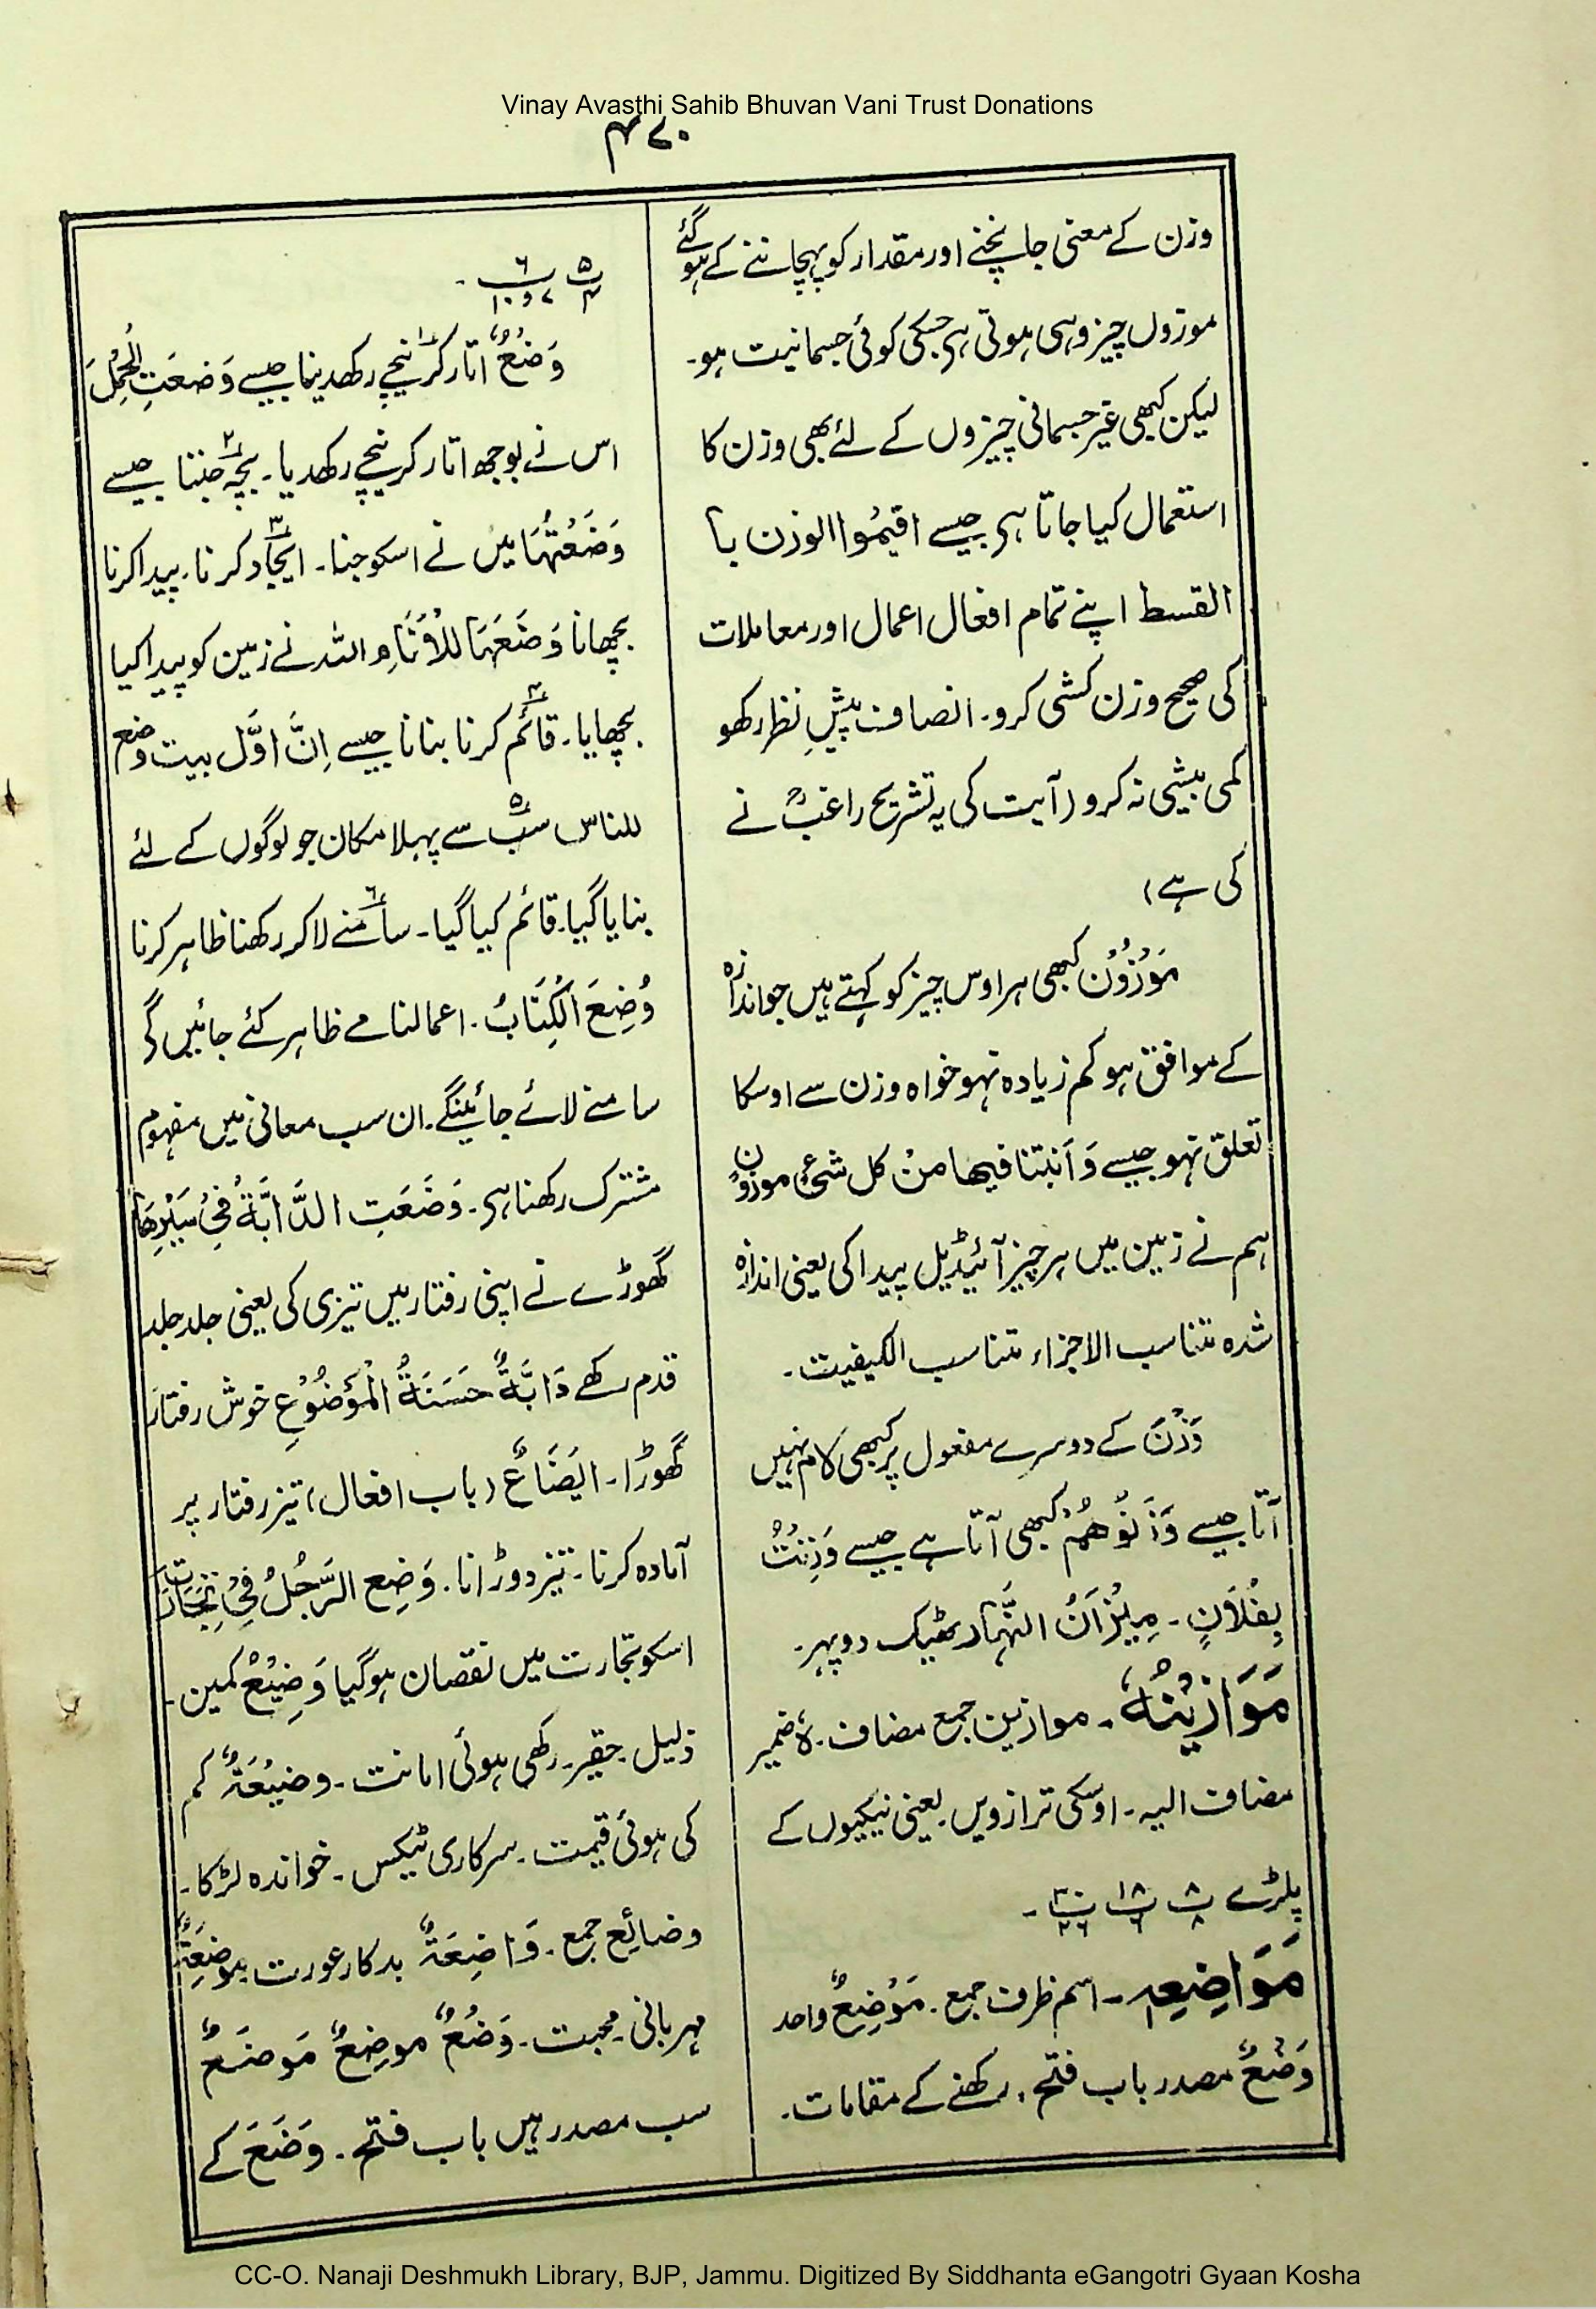 Vinay Avasthi Sahib Bhuvan Vani Trust Donations
۴۷۰
وزن کے معنی جانچنے اور مقدار کو پہچاننے کے ہو گئے
موزوں چیز وہی ہوتی ہی جسکی کوئی جسمانیت ہو۔
لیکن کبھی غیر جسمانی چیزوں کے لئے بھی وزن کا
استعمال کیا جاتا ہی جیسے اقیمُوا الوزن با
القسط اپنے تمام افعال اعمال اور معاملات
کی صحیح وزن کشی کرو۔ انصاف پیشِ نظر رکھو
کمی بیشی نہ کرو (آیت کی یہ تشریح راغبؒ نے
کی ہے)
مَوْزُوْنٌ کبھی ہر اوس چیز کو کہتے ہیں جو اندازہ
کے موافق ہو کم زیادہ نہو خواہ وزن سے اوسکا
تعلق نہو جیسے وَاَنبتنا فیھا مِنْ کل شیءٍ موزونٍ
ہم نے زمین میں ہر چیز آئیڈیل پیدا کی یعنی اندازہ
شدہ متناسب الاجزاء متناسب الکیفیت۔
وَزْنَ کے دوسرے مفعول پر کبھی لام نہیں
آتا جیسے وَزَنُوْهُمْ کبھی آتا ہے جیسے وَزِنْتُ
بِفُلَانٍ۔ مِیْزَانُ النَّهَار ٹھیک دوپہر۔
مَوَازِیْنُهٗ۔ موازین جمع مضاف۔ ہٗ ضمیر
مضاف الیہ۔ اوسکی ترازویں۔ یعنی نیکیوں کے
پلڑے پ۸/۸ پ۱۸/۶ پ۳۰/۲۶۔
مَوَاضِعِہٖ۔ اسم ظرف جمع۔ مَوْضِعٌ واحد
وَضْعٌ مصدر باب فتح۔ رکھنے کے مقامات۔
پ۵/۴ پ۶/۷ و ۱۰۔
وَضْعٌ اتار کر نیچے رکھدینا جیسے وَضعَتِ الْحِمْلَ
اس نے بوجھ اتار کر نیچے رکھدیا۔ بچہ جننا جیسے
وَضَعْتُهَا میں نے اسکو جنا۔ ایجاد کرنا۔ پیدا کرنا
بچھانا وَضَعَهَا لِلْاَنَامِ اللہ نے زمین کو پیدا کیا
بچھایا۔ قائم کرنا بنانا جیسے اِنَّ اوَّل بیت وضع
للناس سب سے پہلا مکان جو لوگوں کے لئے
بنایا گیا۔ قائم کیا گیا۔ سامنے لاکر رکھنا ظاہر کرنا
وُضِعَ الْکِتَابُ۔ اعمالنامے ظاہر کئے جائیں گے
سامنے لائے جائینگے۔ ان سب معانی میں مفہوم
مشترک رکھنا ہی۔ وَضَعَتِ الدَّابَّةُ فِیْ سَیْرِهَا
گھوڑے نے اپنی رفتار میں تیزی کی یعنی جلد جلد
قدم رکھے دَابَّةٌ حَسَنَةُ الْمَوْضُوْعِ خوش رفتار
گھوڑا۔ ایضَاعٌ (باب افعال) تیز رفتار پر
آمادہ کرنا۔ تیز دوڑانا۔ وَضِع الرَّجُلُ فِیْ تِجَارَتِهٖ
اسکو تجارت میں نقصان ہوگیا وَضِیْعٌ کمین۔
ذلیل۔ حقیر۔ رکھی ہوئی امانت۔ وضیْعَةٌ کم
کی ہوئی قیمت۔ سرکاری ٹیکس۔ خواندہ لڑکا۔
وضائِع جمع۔ وَاضِعَةٌ بدکار عورت۔ موضِعَةٌ
مہربانی۔ محبت۔ وَضْعٌ موضِعٌ مَوضَعٌ
سب مصدر ہیں باب فتح۔ وَضَعَ کے
CC-O. Nanaji Deshmukh Library, BJP, Jammu. Digitized By Siddhanta eGangotri Gyaan Kosha